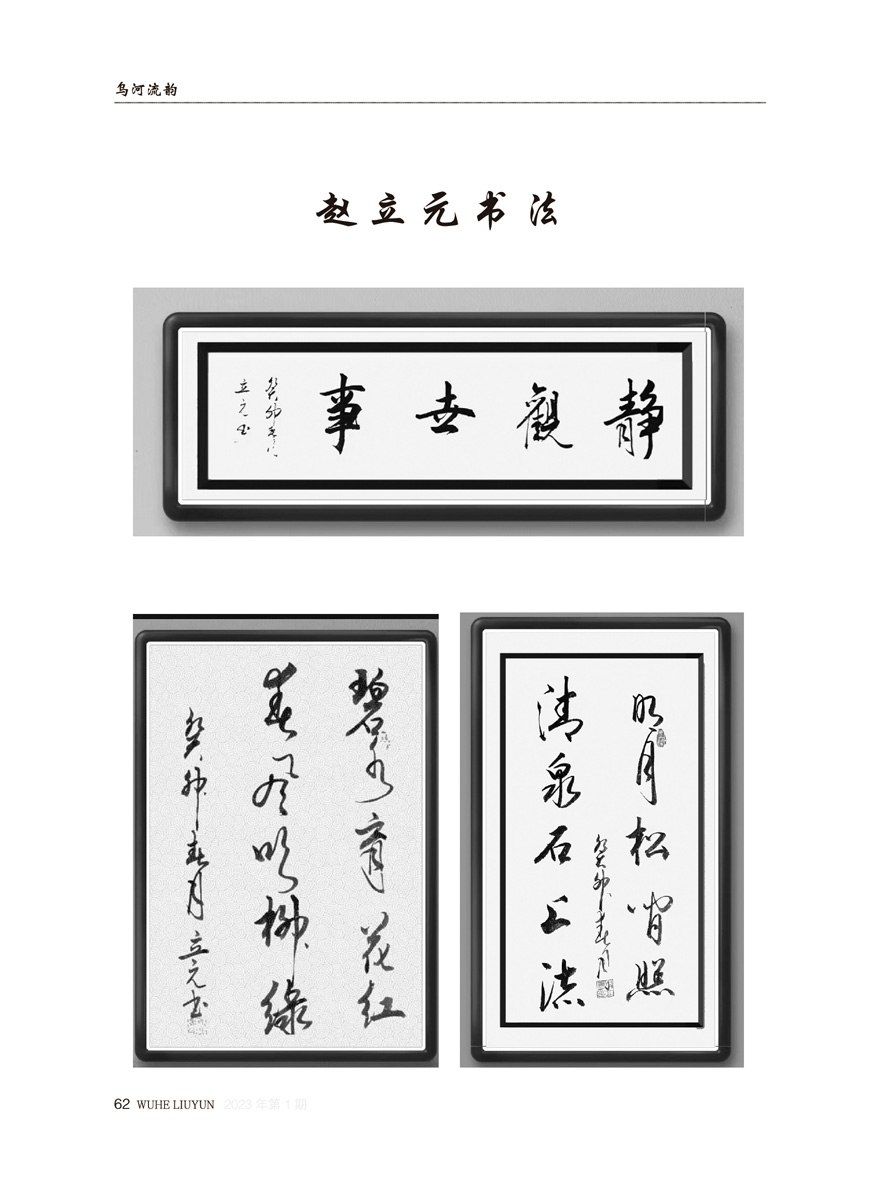 乌河流韵
赵立元书法
静觀世事
癸卯春月
立元书
碧水育花红
春风吹柳绿
癸卯春月立元书
明月松间照
清泉石上流
癸卯春月
62 WUHE LIUYUN 2023 年第 1 期